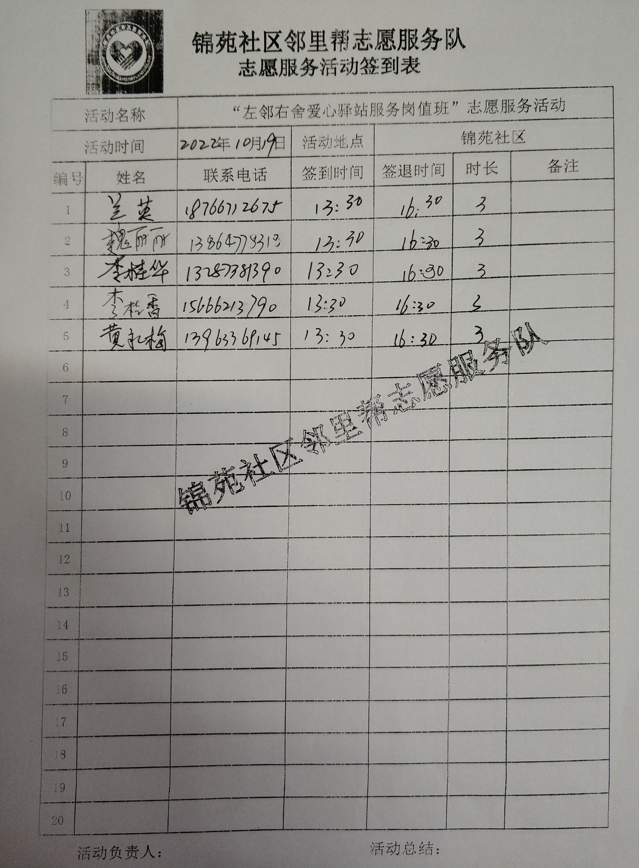 锦苑社区邻里帮志愿服务队
志愿服务活动签到表
活动名称 “左邻右舍爱心驿站服务岗值班”志愿服务活动
活动时间 2022年10月19日 活动地点 锦苑社区
编号 姓名 联系电话 签到时间 签退时间 时长 备注
1 兰英 18766712675 13:30 16:30 3
2 魏丽丽 13:30 16:30 3
3 李桂华 13287381390 13:30 16:30 3
4 15666213790 13:30 16:30 3
5 13963369145 13:30 16:30 3
6
7
8
9
10
11
12
13
14
15
16
17
18
19
20
锦苑社区邻里帮志愿服务队
活动负责人： 活动总结：